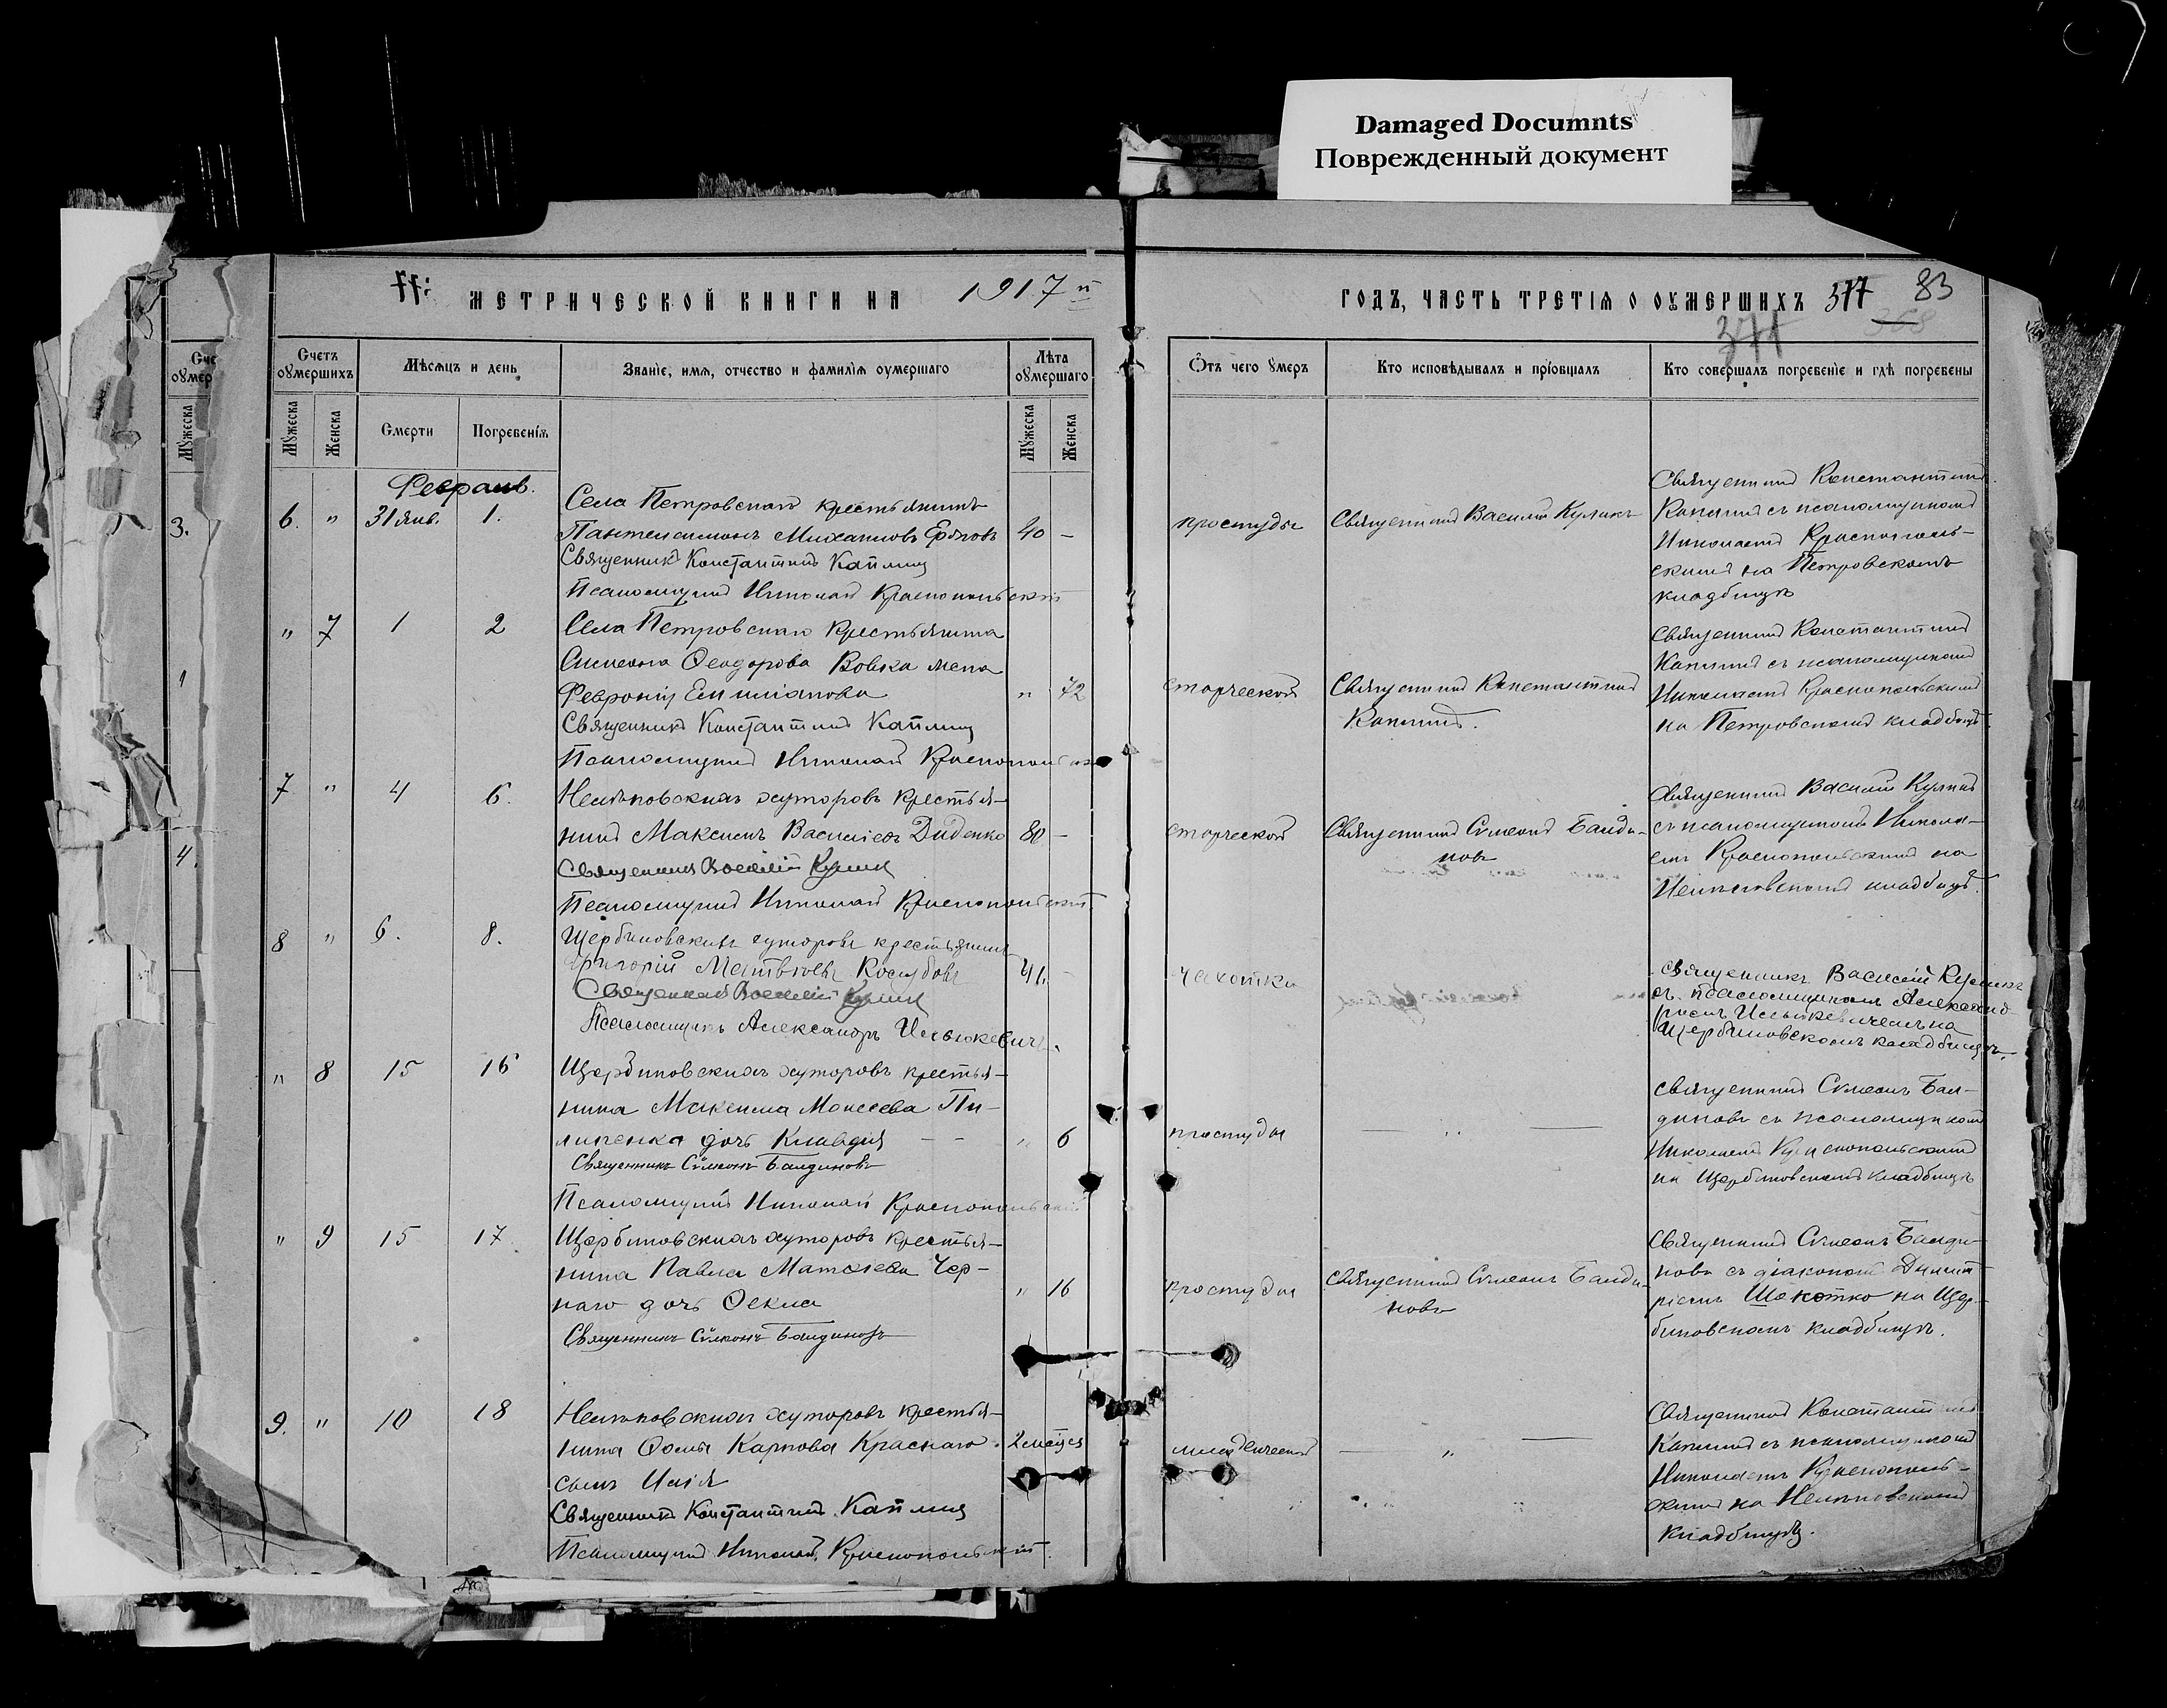 Damaged Documnts
Поврежденный документ
МЕТРИЧЕСКОЙ КНИГИ НА 1917 й
ГОДЪ, ЧАСТЬ ТРЕТІЯ О ОУМЕРШИХЪ 377 83
377
368
Счетъ оумершихъ
Мѣсяцъ и день
Званіе, имя, отчество и фамилія оумершаго
Лѣта оумершаго
Отъ чего умеръ
Кто исповѣдывалъ и пріобщалъ
Кто совершалъ погребеніе и гдѣ погребены
Мужеска
Женска
Смерти
Погребенія
Мужеска
Женска
Февраль.
6. " 31 янв. 1.
Села Петровскаго крестьянинъ
Пантелеимонъ Михаиловъ 40 -
Священникъ Константинъ Каплинъ
Псаломщикъ Николай Краснопольскій
простуды
Священникъ Василій Куликъ
Священникъ Константинъ
Каплинъ съ псаломщикомъ
Николаемъ Краснополь-
скимъ на Петровскомъ
кладбищѣ
" 7 1 2
Села Петровскаго крестьянина
Симеона Феодорова Вовка жена
Февронія Емиліанова " 72
Священникъ Константинъ Каплинъ
Псаломщикъ Николай Краснопольскій
старческой
Священникъ Константинъ
Каплинъ.
Священникъ Константинъ
Каплинъ съ псаломщикомъ
Николаемъ Краснопольскимъ
на Петровскомъ кладбищѣ.
7 " 4 6.
хуторовъ крестья-
нинъ Максимъ Василіевъ Диденко 80 -
Священникъ Василій Куликъ
Псаломщикъ Николай Краснопольскій.
старческой
Священникъ Сѵмеонъ Банди-
новъ
Священникъ Василій Куликъ
съ псаломщикомъ Никола-
емъ Краснопольскимъ на
кладбищѣ.
8 " 6. 8.
Щербиновскихъ хуторовъ крестьянинъ
Григорій Матвѣевъ 41. -
Священникъ Василій Куликъ
Псаломщикъ Александръ Ильюкевичъ.
чахотка
Священникъ Василій Куликъ
съ псаломщикомъ Александ
ромъ Ильюкевичемъ на
Щербиновскомъ кладбищѣ.
" 8 15 16
Щербиновскихъ хуторовъ крестья-
нина Максима Моисеева Пи-
липенка дочь Клавдія - - " 6
Священникъ Сѵмеонъ Бандиновъ
Псаломщикъ Николай Краснопольскій
простуды
— " —
Священникъ Сѵмеонъ Бан-
диновъ съ псаломщикомъ
Николаемъ Краснопольскимъ
на Щербиновскомъ кладбищѣ
" 9 15 17
Щербиновскихъ хуторовъ крестья-
нина Павла Матѳіева Чер-
наго дочь Ѳекла " 16
Священникъ Сѵмеонъ Бандиновъ
простуды
Священникъ Сѵмеонъ Банди-
новъ
Священникъ Сѵмеонъ Банди-
новъ съ діакономъ Димит
ріемъ Шакотко на Щер-
биновскомъ кладбищѣ.
9. " 10 18
хуторовъ крестья-
нина Ѳомы Карпова Краснаго 2 мѣсяца
сынъ Исаія
Священникъ Константинъ Каплинъ
Псаломщикъ Николай Краснопольскій.
младенческой
— " —
Священникъ Константинъ
Каплинъ съ псаломщикомъ
Николаемъ Краснополь-
скимъ на
кладбищѣ.
3.
1
4.